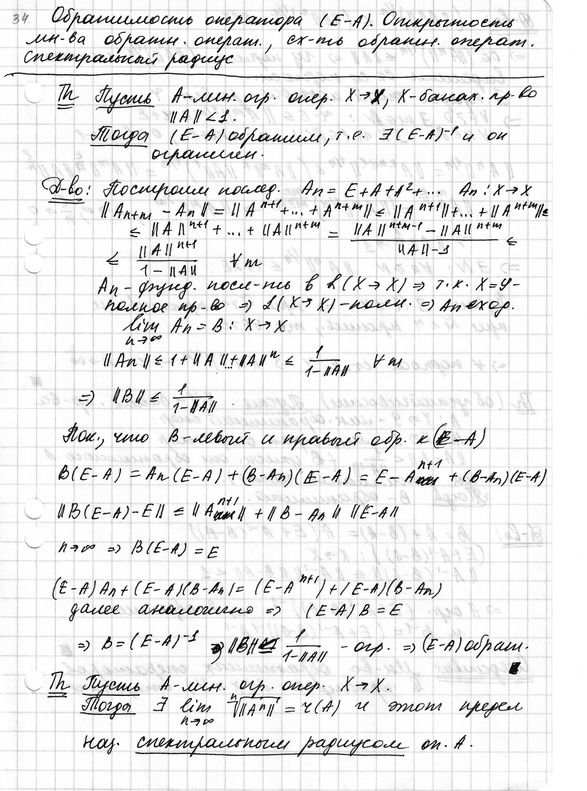 34 Обратимость оператора (E-A). Открытость
мн-ва обратн. операт., сх-ть обратн. операт.
Спектральный радиус
Th Пусть A-лин. огр. опер. X→X, X-банах. пр-во
||A||<1.
Тогда (E-A) обратим, т.е. ∃(E-A)⁻¹ и он
ограничен.
Д-во: Построим послед. An = E+A+A²+... An : X→X
||An+m - An|| = ||Aⁿ⁺¹+...+Aⁿ⁺ᵐ|| ≤ ||Aⁿ⁺¹||+...+||Aⁿ⁺ᵐ|| ≤
≤ ||A||ⁿ⁺¹+...+||A||ⁿ⁺ᵐ = (||A||ⁿ⁺ᵐ⁻¹ - ||A||ⁿ⁺ᵐ)/(||A||-1) ≤
≤ ||A||ⁿ⁺¹/(1-||A||) ∀m
An - фунд. посл-ть в L(X→X) ⇒ т.к. X=Y-
полное пр-во ⇒ L(X→X)-полн. ⇒ An сход.
lim n→∞ An = B : X→X
||An|| ≤ 1+||A||+...||A||ⁿ ≤ 1/(1-||A||) ∀m
⇒ ||B|| ≤ 1/(1-||A||).
Пок., что B-левый и правый обр. к (E-A)
B(E-A) = An(E-A)+(B-An)(E-A) = E-Aⁿ⁺¹+(B-An)(E-A)
||B(E-A)-E|| ≤ ||Aⁿ⁺¹|| + ||B-An|| ||E-A||
n→∞ ⇒ B(E-A) = E
(E-A)An+(E-A)(B-An) = (E-Aⁿ⁺¹)+(E-A)(B-An)
далее аналогично ⇒ (E-A)B = E
⇒ B=(E-A)⁻¹ ⇒ ||B|| ≤ 1/(1-||A||) - огр. ⇒ (E-A) обрат.
Th Пусть A-лин. огр. опер. X→X.
Тогда ∃ lim n→∞ ⁿ√||Aⁿ|| = r(A) и этот предел
наз. спектральным радиусом оп. A.